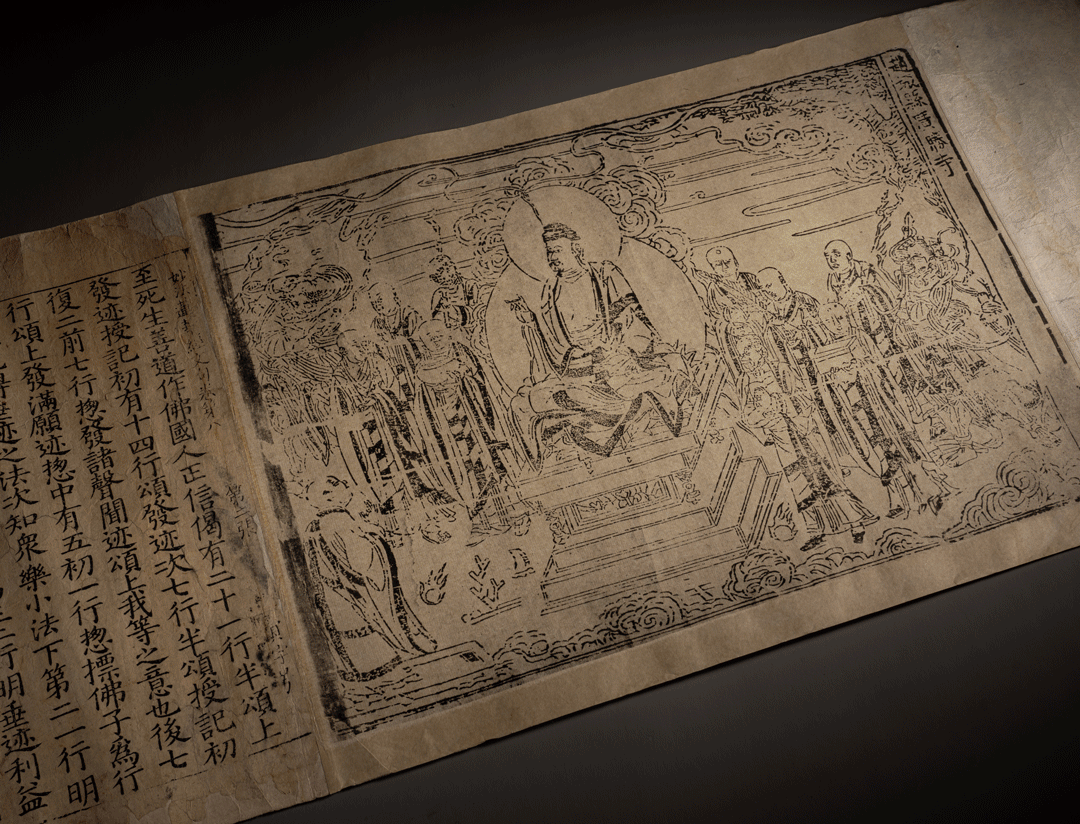 趙城縣廣勝寺
至死生善道作佛國人正信偈有二十一行半頌上
發迹授記初有十四行頌發迹次七行半頌授記初
復二前七行揔發諸聲聞迹頌上我等之意也後七
行頌上發滿願迹揔中有五初一行揔摽佛子爲行
得垂迹之法次知衆樂小法下第二一行明
二行明垂迹利益